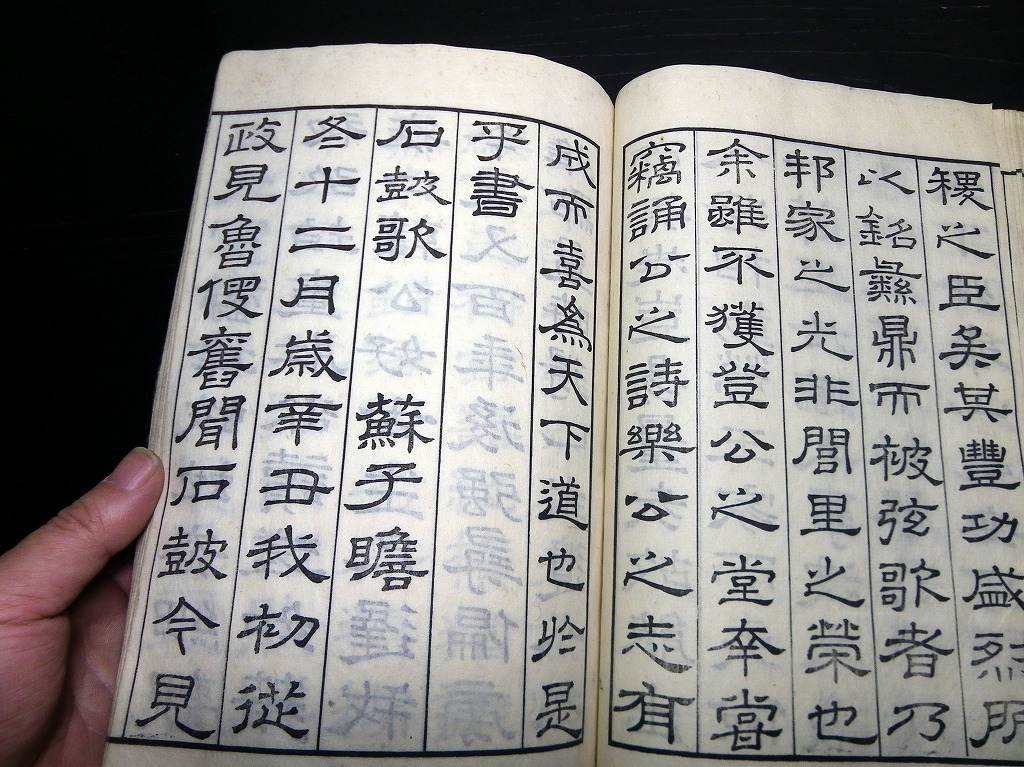 稷之臣矣其豐功盛烈所
以銘彝鼎而被弦歌者乃
邦家之光非閭里之榮也
余雖不獲登公之堂幸嘗
竊誦公之詩樂公之志有
成而喜爲天下道也於是
乎書
石鼓歌 蘇子瞻
冬十二月歲辛丑我初從
政見魯傁舊聞石鼓今見